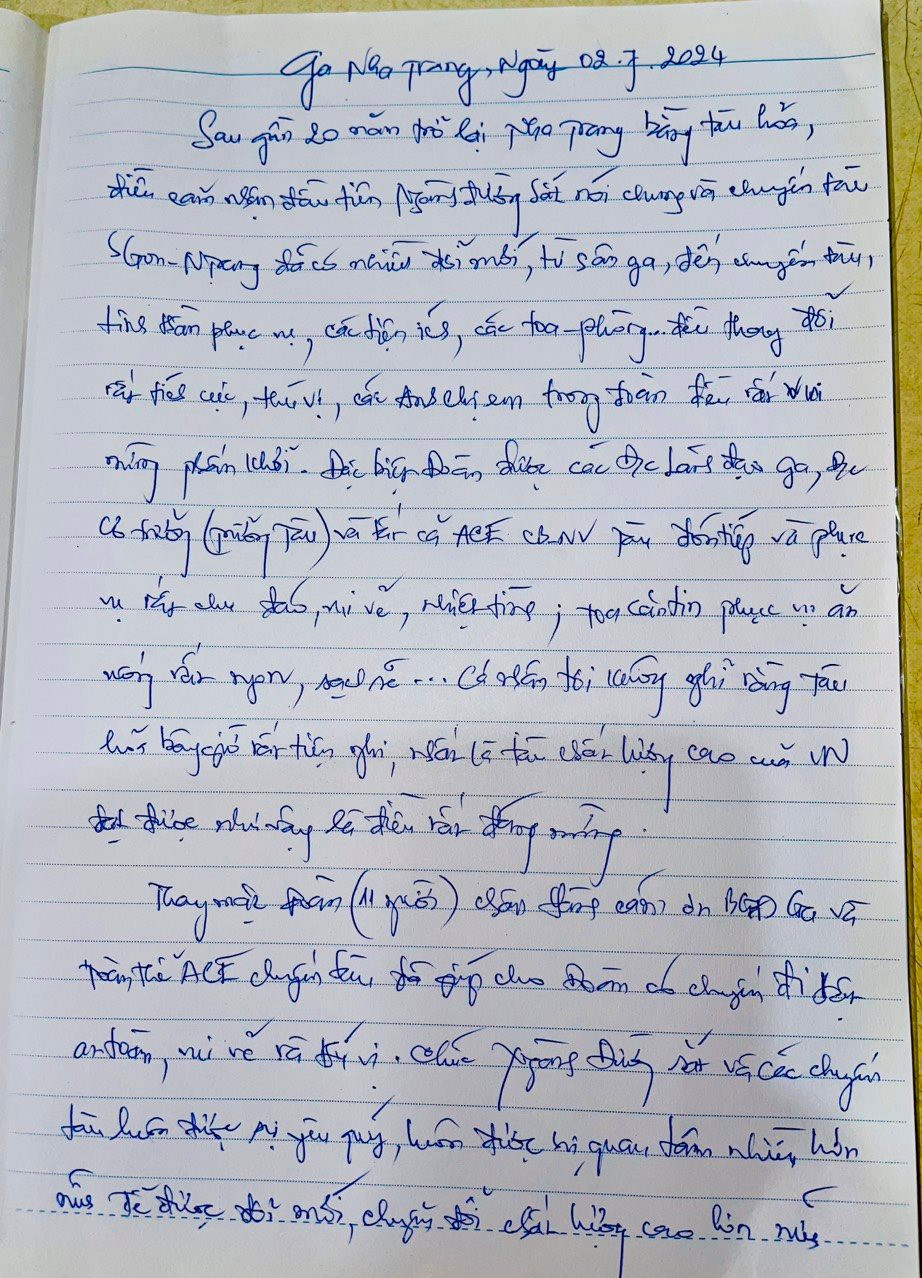 Ga Nha Trang, Ngày 02.7.2024
Sau gần 20 năm trở lại Nha Trang bằng tàu hỏa,
điều cảm nhận đầu tiên Ngành đường Sắt nói chung và chuyến tàu
SGon-NTrang đã có nhiều đổi mới, từ sân ga, đến chuyến tàu,
tinh thần phục vụ, các tiện ích, các toa-phòng... đều thay đổi
rất tích cực, thú vị, các Anh chị em trong đoàn đều rất vui
mừng phấn khởi. Đặc biệt Đoàn được các Đc Lãnh đạo ga, Đc
trưởng (trưởng Tàu) và tất cả ACE CBNV Tàu đón tiếp và phục
vụ rất chu đáo, vui vẻ, nhiệt tình; toa căn tin phục vụ ăn
uống rất ngon, sạch sẽ ... Cá nhân tôi không nghĩ rằng Tàu
hỏa bây giờ rất tiện nghi, nhất là tàu chất lượng cao của VN
đạt được như vậy là điều rất đáng mừng.
Thay mặt Đoàn (11 người) chân thành cám ơn BGĐ Ga và
toàn thể ACE chuyến tàu đã giúp cho Đoàn có chuyến đi thật
an toàn, vui vẻ và thú vị. Chúc Ngành Đường sắt và các chuyến
tàu luôn được yêu quý, luôn được quan tâm nhiều hơn
nữa để được đổi mới, chuyển đổi chất lượng cao hơn nữa